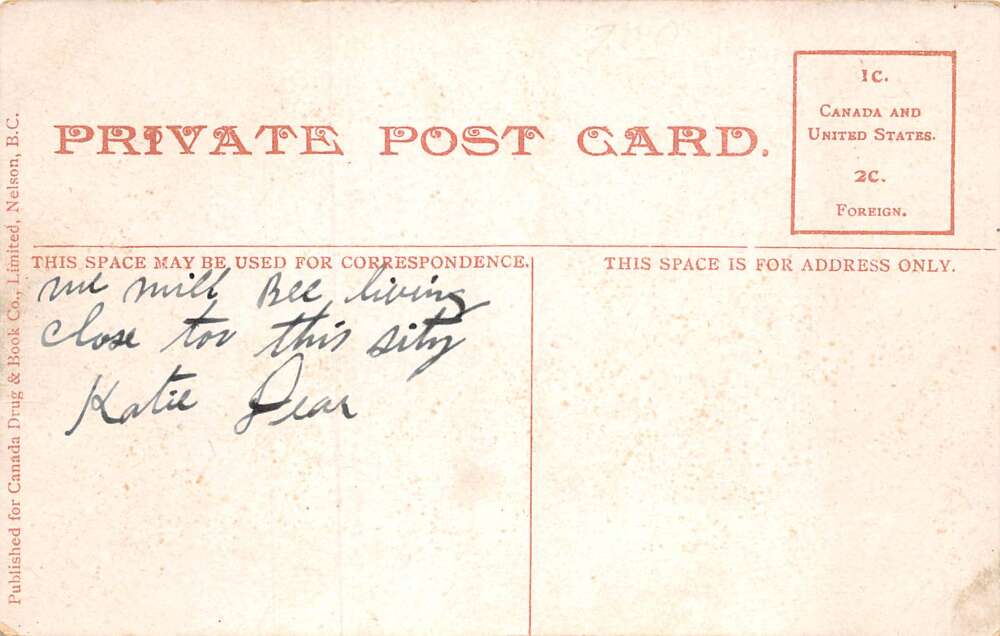 PRIVATE POST CARD.
1C.
CANADA AND
UNITED STATES.
2C.
FOREIGN.
THIS SPACE MAY BE USED FOR CORRESPONDENCE.
THIS SPACE IS FOR ADDRESS ONLY.
mill Bee living
close too this sity
Katie Dear
Published for Canada Drug & Book Co., Limited, Nelson, B.C.